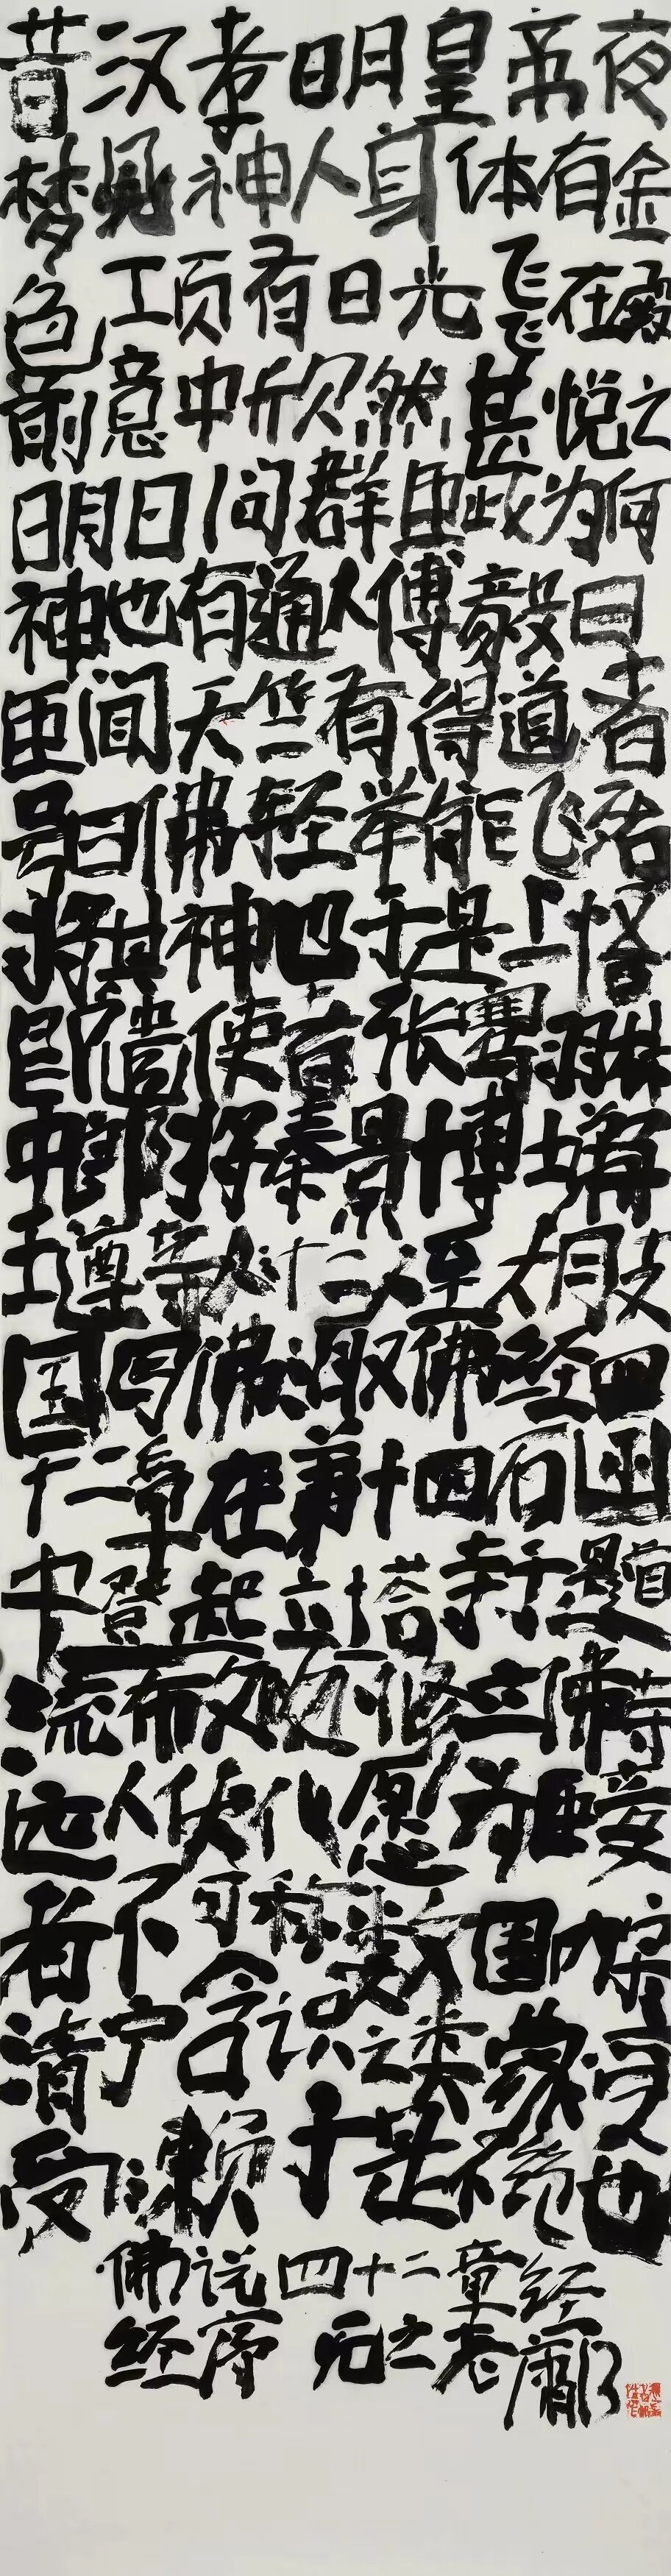 昔汉孝明皇帝夜
梦见神人身体有金
色工项有日光飞飞在殿
前意中欣然甚悦之
明日问群臣此为何
神也有通人傅毅曰
臣闻天竺有得道者
号曰佛轻举能飞殆
将其神也于是上悟
即遣使者张骞羽林
中郎将秦景博士
王遵等人十二人至大月支
国写佛取佛经四
十二章在第十四石函
中登起立塔寺于是道
流布处处修立佛寺
远人伏化愿为臣妾
者不可称数国内
清宁含识之类蒙受
受赖于是不绝也
佛说四十二章经
经序 元之